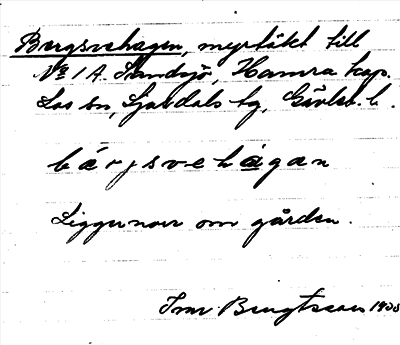 Bergsvehagen, myrtäkt till
No 1 A. Sandsjö, Hamra kap.
Los sn, Ljusdals tg, Gävleb. l.
bärjsvehagan
Ligger nor om gården.
Ivar Bengtsson 1935